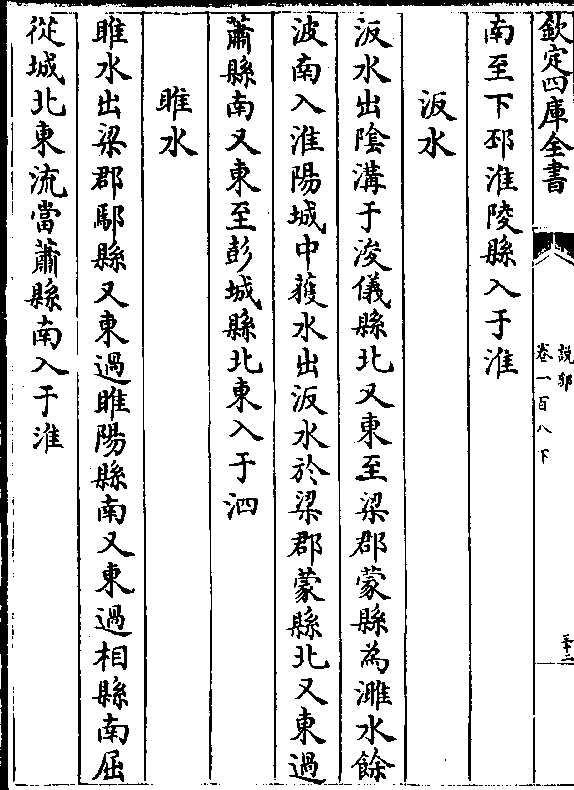 欽定四庫全書
說郛
卷一百八下
三十二
南至下邳淮陵縣入于淮
汳水
汳水出陰溝于浚儀縣北又東至梁郡蒙縣為濉水餘
波南入淮陽城中䕶水出汳水於梁郡蒙縣北又東過
蕭縣南又東至彭城縣北東入于泗
睢水
睢水出梁郡鄢縣又東過睢陽縣南又東過相縣南屈
從城北東流當蕭縣南入于淮